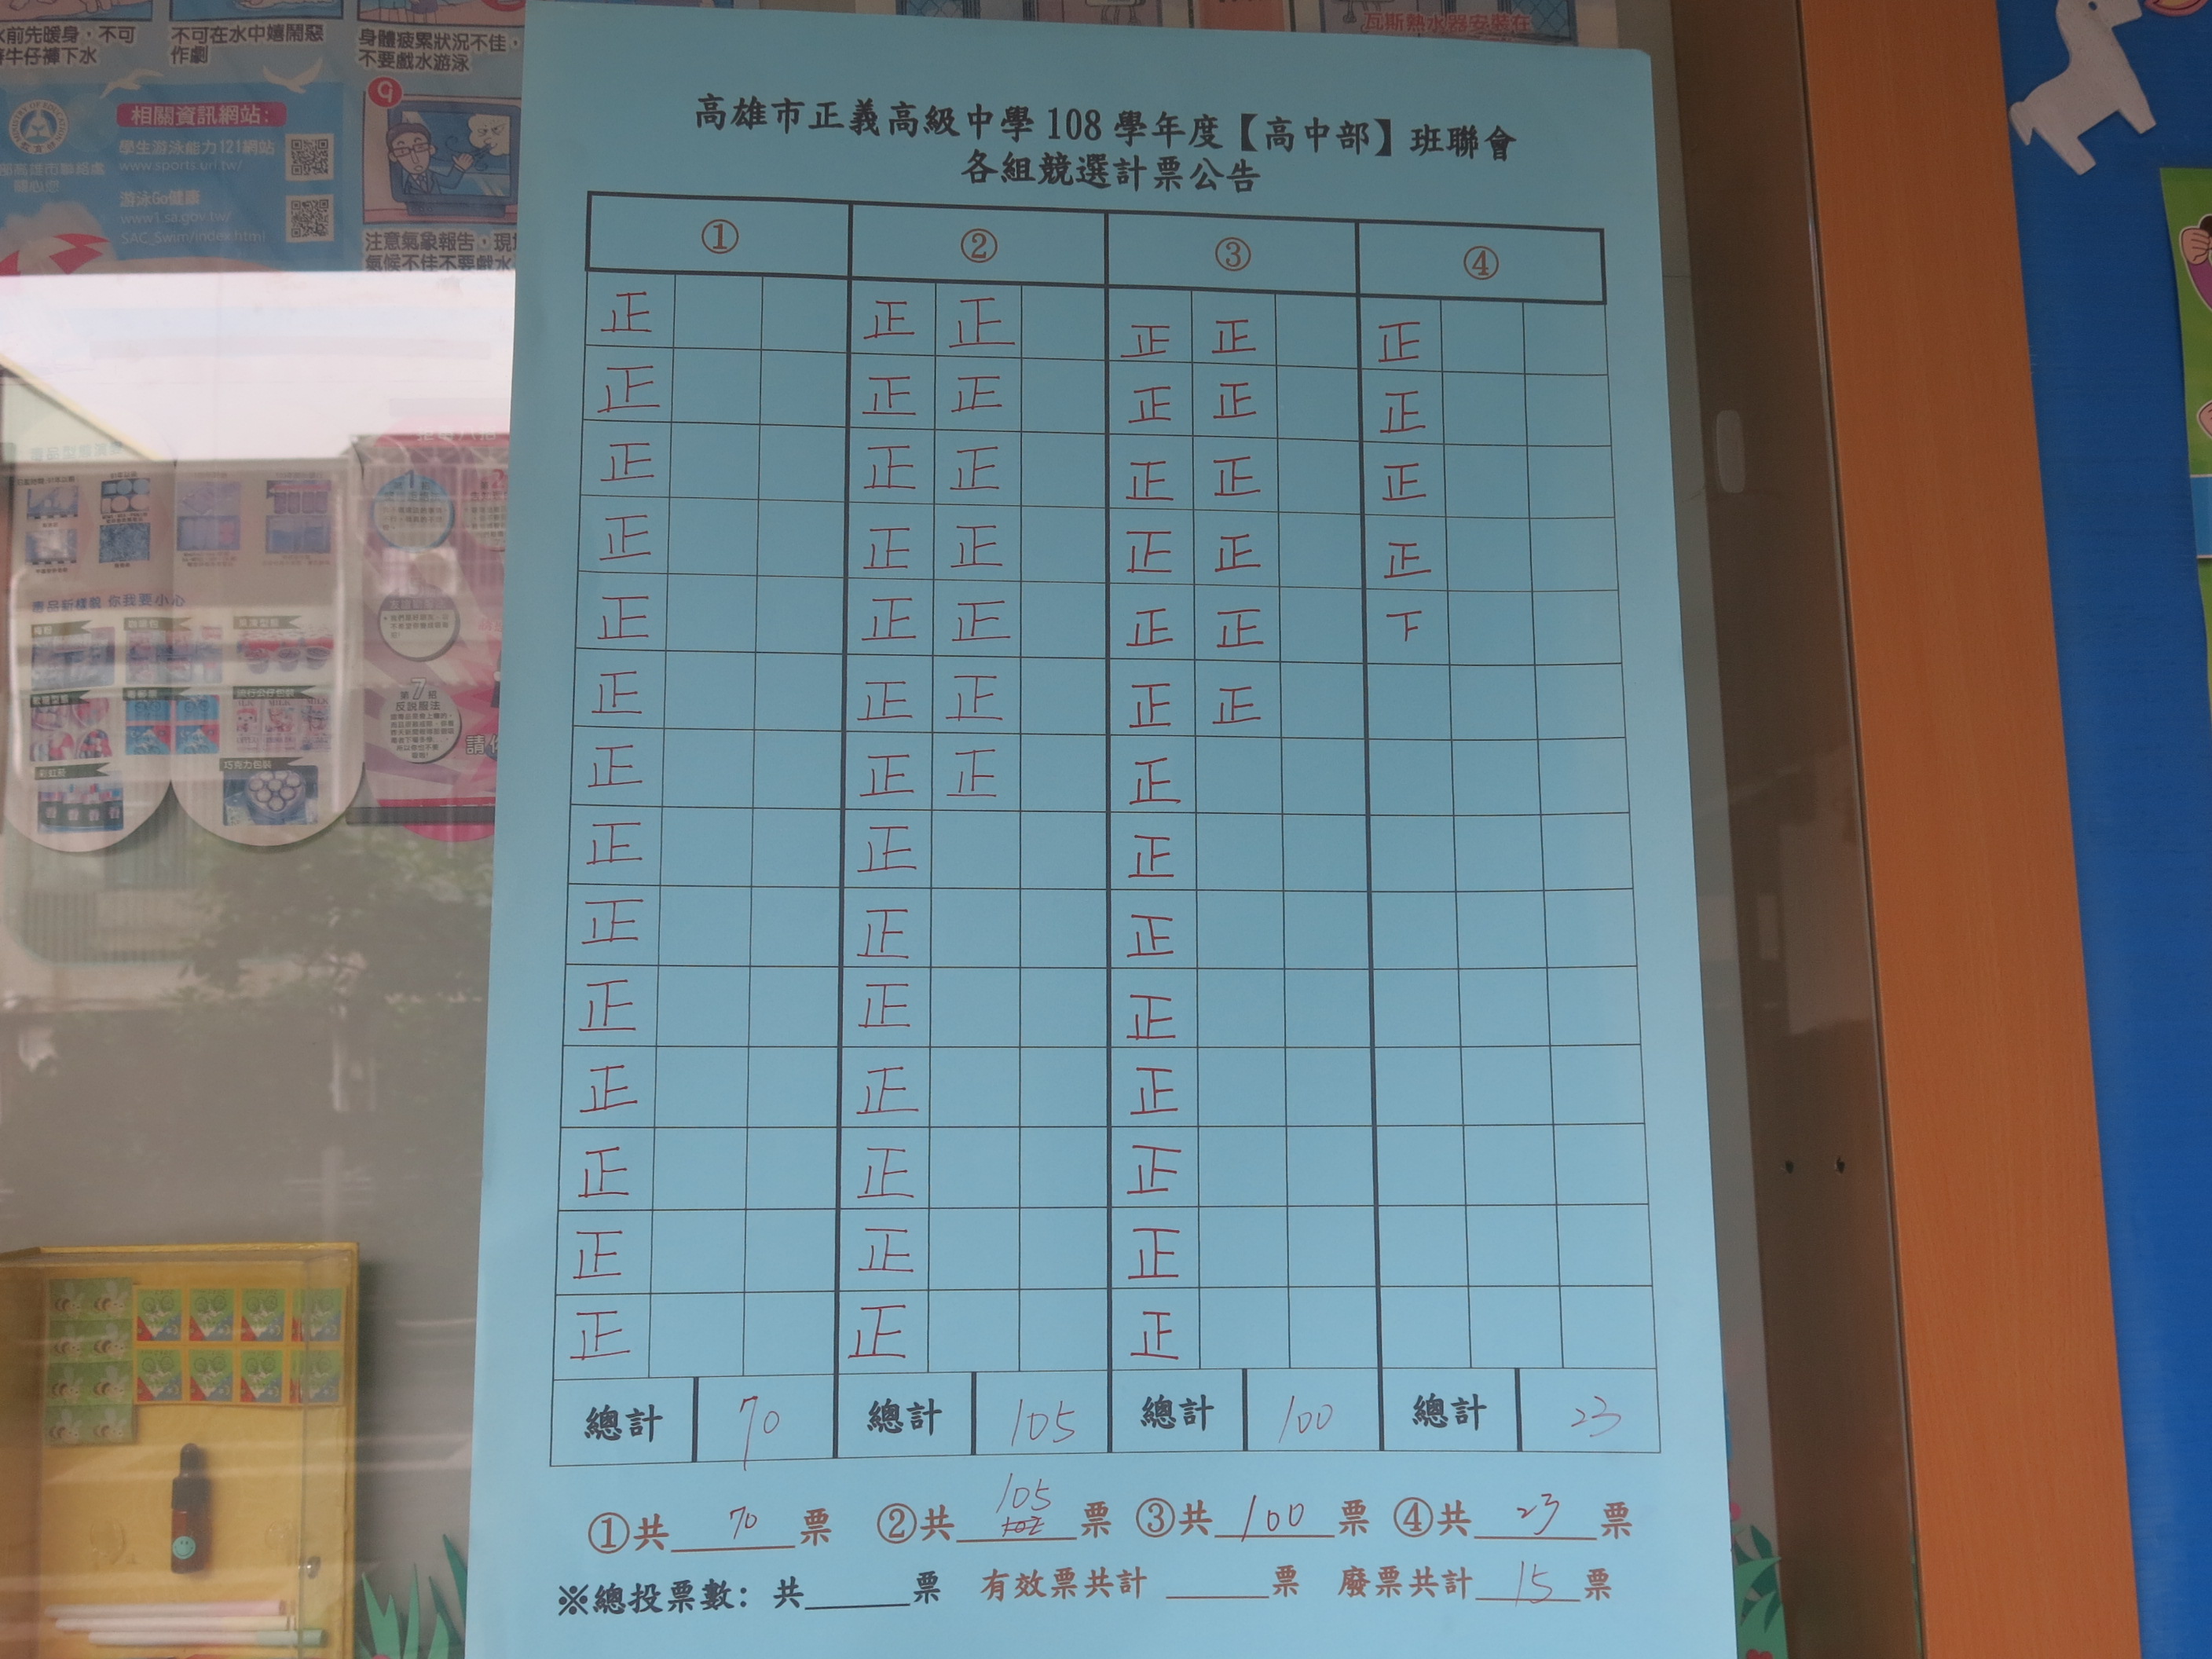 水前先暖身，不可
穿牛仔褲下水
不可在水中嬉鬧惡
作劇
身體疲累狀況不佳，
不要戲水游泳
瓦斯熱水器安裝在
9
相關資訊網站：
學生游泳能力121網站
www.sports.url.tw/
游泳Go健康
www1.sa.gov.tw/
SAC_Swim/index.html
注意氣象報告，現場
氣候不佳不要戲水
毒品新樣貌 你我要小心
彩虹菸
巧克力包裝
第7招
反說服法
高雄市正義高級中學 108 學年度【高中部】班聯會
各組競選計票公告
① ② ③ ④
正 正 正 正 正 正
正 正 正 正 正 正
正 正 正 正 正 正
正 正 正 正 正 正
正 正 正 正 正 下
正 正 正 正 正
正 正 正 正
正 正 正
正 正 正
正 正 正
正 正 正
正 正 正
正 正 正
正 正 正
總計 70 總計 105 總計 100 總計 23
105
①共 70 票 ②共 102 票 ③共 100 票 ④共 23 票
※總投票數：共______票 有效票共計 ______票 廢票共計 15 票